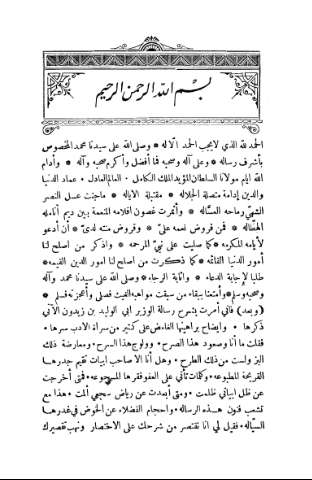 بسم الله الرحمن الرحيم
الحمد لله الذي لا يجب الحمد الا له * وصلى الله على سيدنا محمد المخصوص
بأشرف رساله * وعلى آله وصحبه فما أفضل وأكرم صحبه وآله * وأدام
الله ايام مولانا السلطان المؤيد الملك الكامل * العالم العادل * عماد الدنيا
والدين إدامة متصلة الجلاله * مقتبلة الاياله * ماجنت عسل النصر
الشهيّ رماحه العسّاله * وأثمرت غصون اقلامه المتنعمة بين ديم أنامله
الهطّاله * فمن فروض نعمه عليّ * وفروض مننه لديّ * أن أدعو
لأيامه المكرمه * كما صليت على نبيّ المرحمه * واذكر من اصلح لنا
أمور الدنيا القائمه * كما ذكرت من اصلح لنا امور الدين القيمه *
طلبا لإجابة الدعاء * وانابة الرجاء * وصلى الله على سيدنا محمد وآله
وصحبه وسلم * وأمتعنا ببقاء من سبقت مواهبه الغيث فصلى وأعجزته فسلم *
(وبعد) فاني أمرت بشرح رسالة الوزير ابي الوليد بن زيدون الآتي
ذكرها * وايضاح براهينها الغامض على كثير من سراة الادب سرها *
فقلت ما أنا وصعود هذا الصرح * وولوج هذا السرح * ومعارضة ذلك
البز ولست من ذلك الطرح * وهل أنا الا صاحب ابيات تقيم جدرها
القريحة المطبوعه * وكلمات تأتي على المفوقرها المسجوعه * فمتى أخرجت
عن ظل ابياتي ظلمت * ومتى أبعدت عن رياض سجعي ألمت * هذا مع
تشعب فنون هذه الرساله * واحجام الفضلاء عن الخوض في غدرها
السيّاله * فقيل لي انا نقتصر من شرحك على الاختصار ونهب تقصيرك